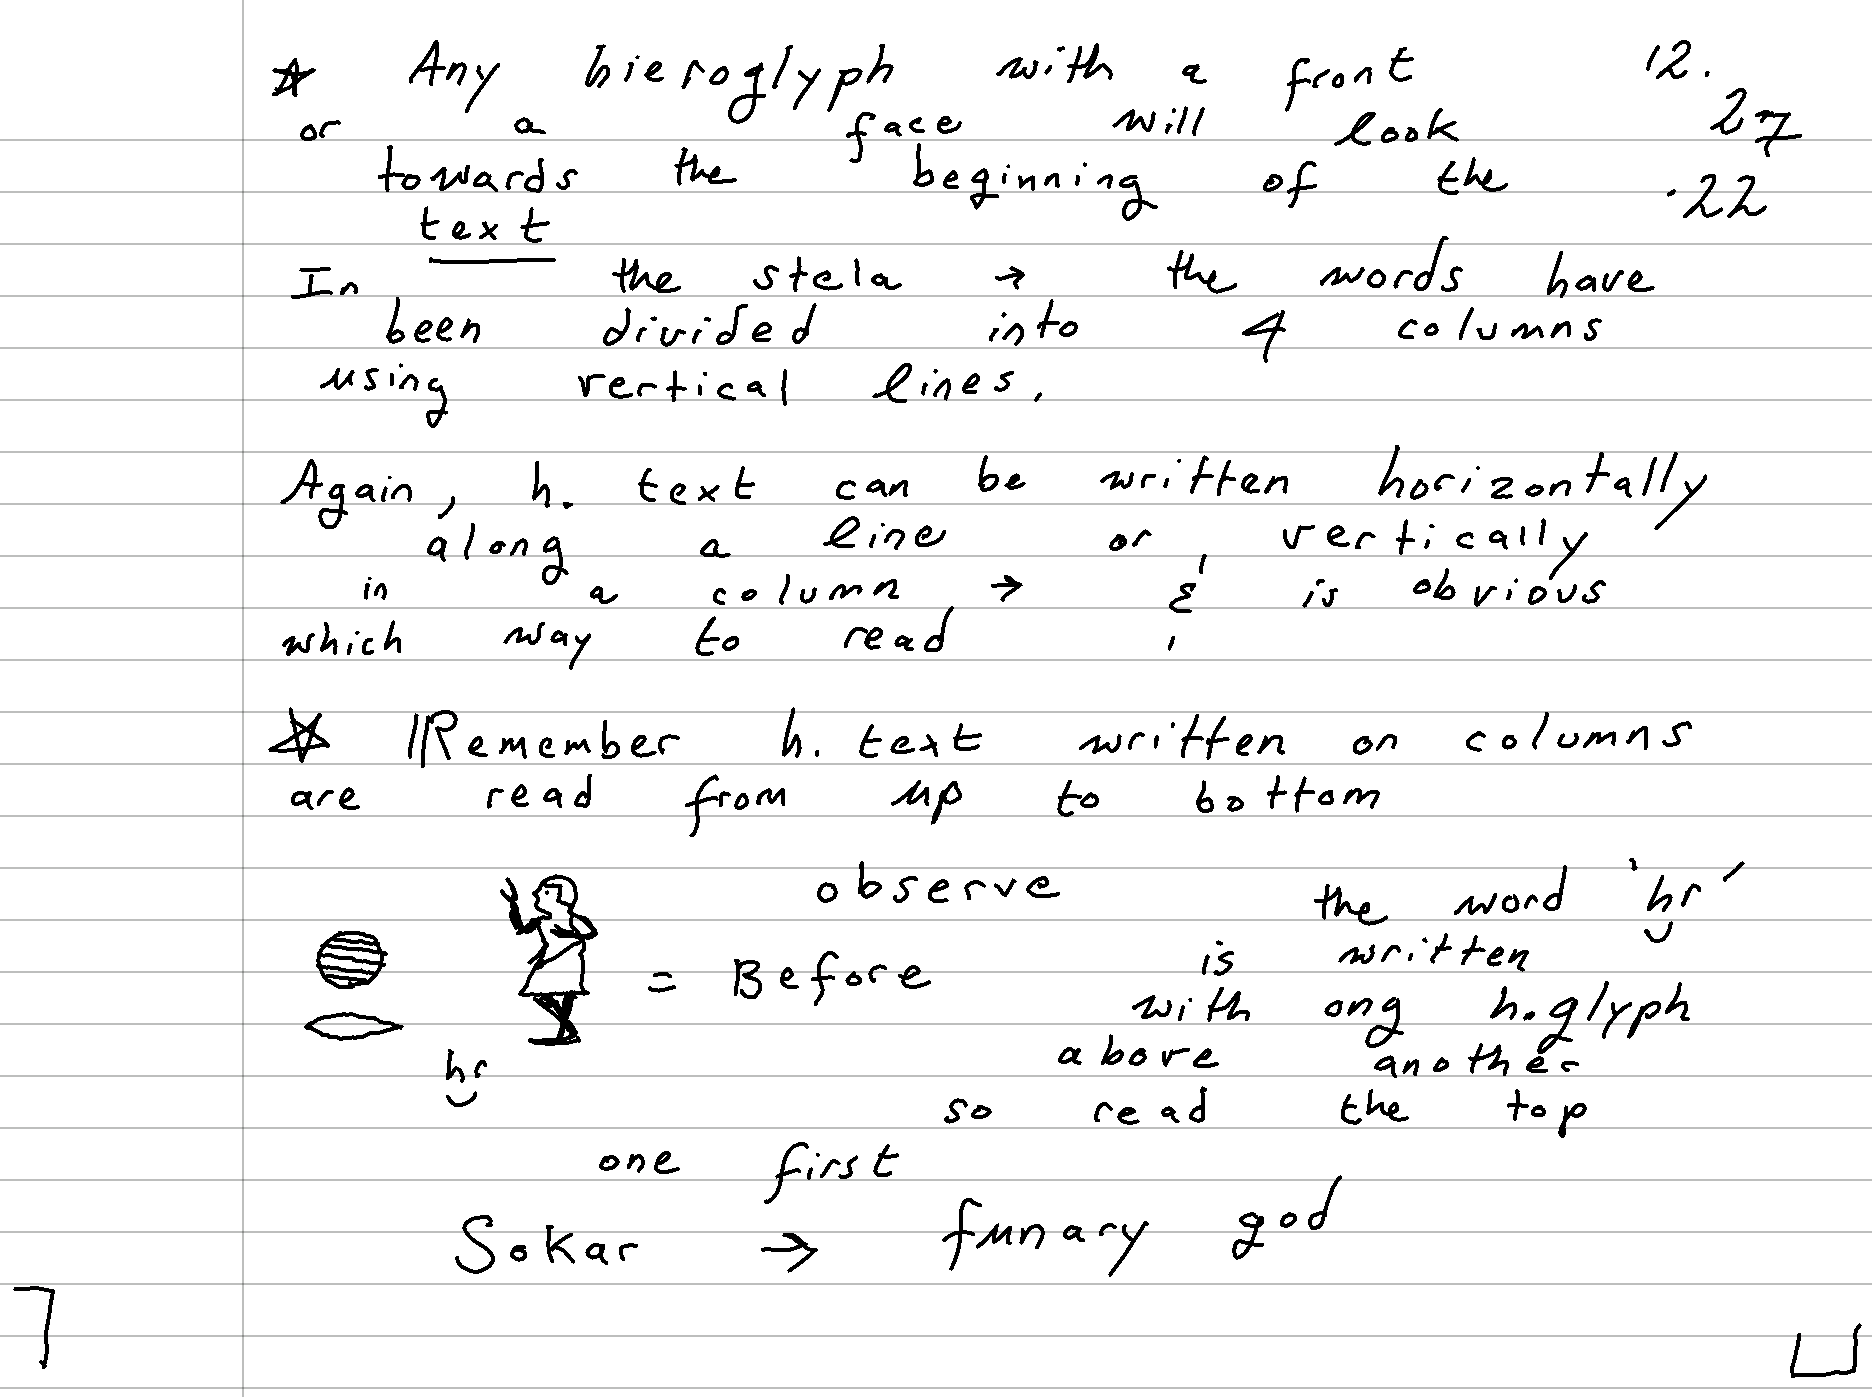 ☆ Any hieroglyph with a front 12.
or a face will look 27
towards the beginning of the .22
text
In the stela → the words have
been divided into 4 columns
using vertical lines.
Again, h. text can be written horizontally
along a line or vertically
in a column → & is obvious
which way to read
☆ Remember h. text written on columns
are read from up to bottom
observe the word 'ḫr'
= Before is written
with ong h.glyph
ḫr above another
so read the top
one first
Sokar → funary god